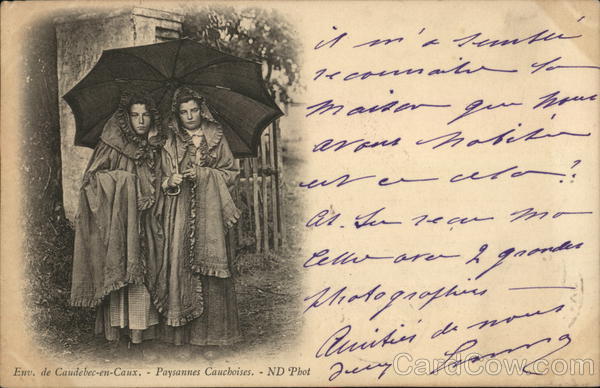 il m'a semblé
reconnaitre la
maison que nous
avons habitée
est ce cela??
As-tu reçu ma
lettre avec 2 grandes
photographies —
Amitiés de nous
Env. de Caudebec-en-Caux. - Paysannes Cauchoises. - ND Phot
CardCow.com